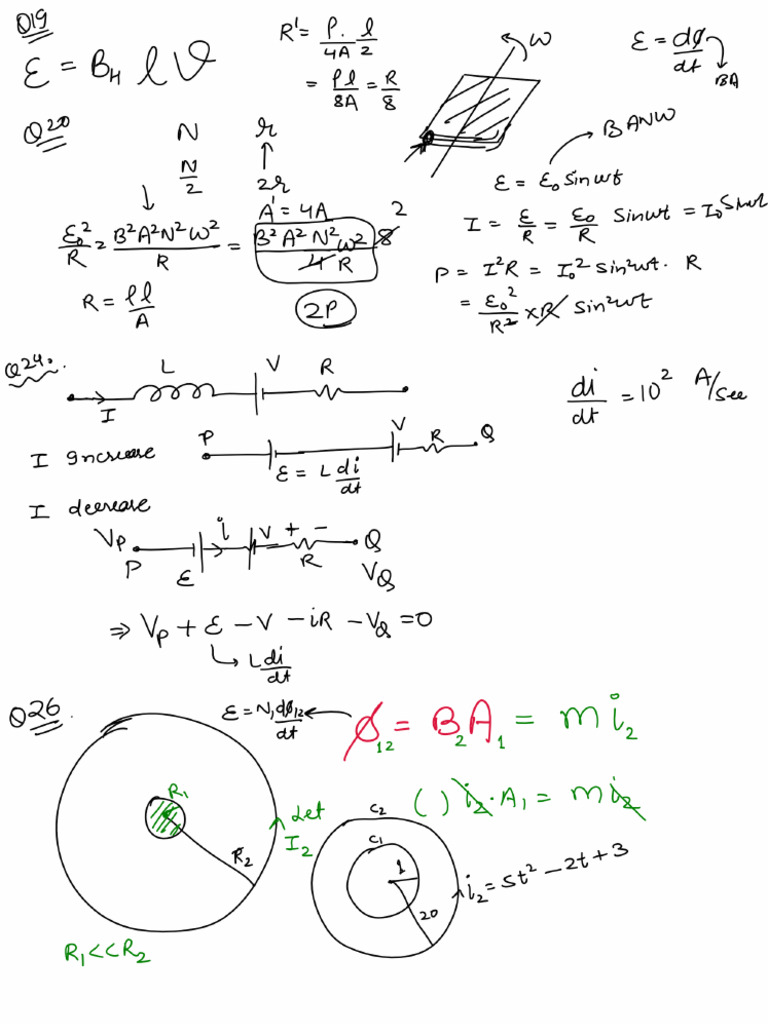 Q19
ε = B_H l v
R' = ρ. l / 4A 2
= ρl / 8A = R / 8
ω
ε = dφ / dt
BA
Q20
N r
N/2 2r
A' = 4A
BANω
ε = ε₀ Sinωt
ε₀² / R = B²A²N²ω² / R = B² A² N² ω² 8 / 4 R 2
I = ε / R = ε₀ / R Sinωt = I₀ Sinωt
R = ρl / A
2P
P = I²R = I₀² sin²ωt. R
= ε₀² / R² × R sin²ωt
Q24.
L V R
I
di / dt = 10² A/sec
I increase
P V R Q
ε = L di / dt
I decrease
V_P i V + - Q
P ε R V_Q
⇒ V_P + ε - V - iR - V_Q = 0
L di / dt
Q26.
ε = N₁ dφ₁₂ / dt
φ₁₂ = B₂ A₁ = m i₂
R₁
R₂
Let I₂
( ) i₂ . A₁ = m i₂
C₂
C₁
1
20
i₂ = 5t² - 2t + 3
R₁ << R₂